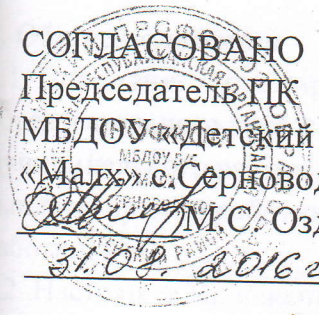 СОГЛАСОВАНО
Председатель ПК
МБДОУ «Детский
«Малх» с.Серновод
М.С. Озд
31.08. 2016 г